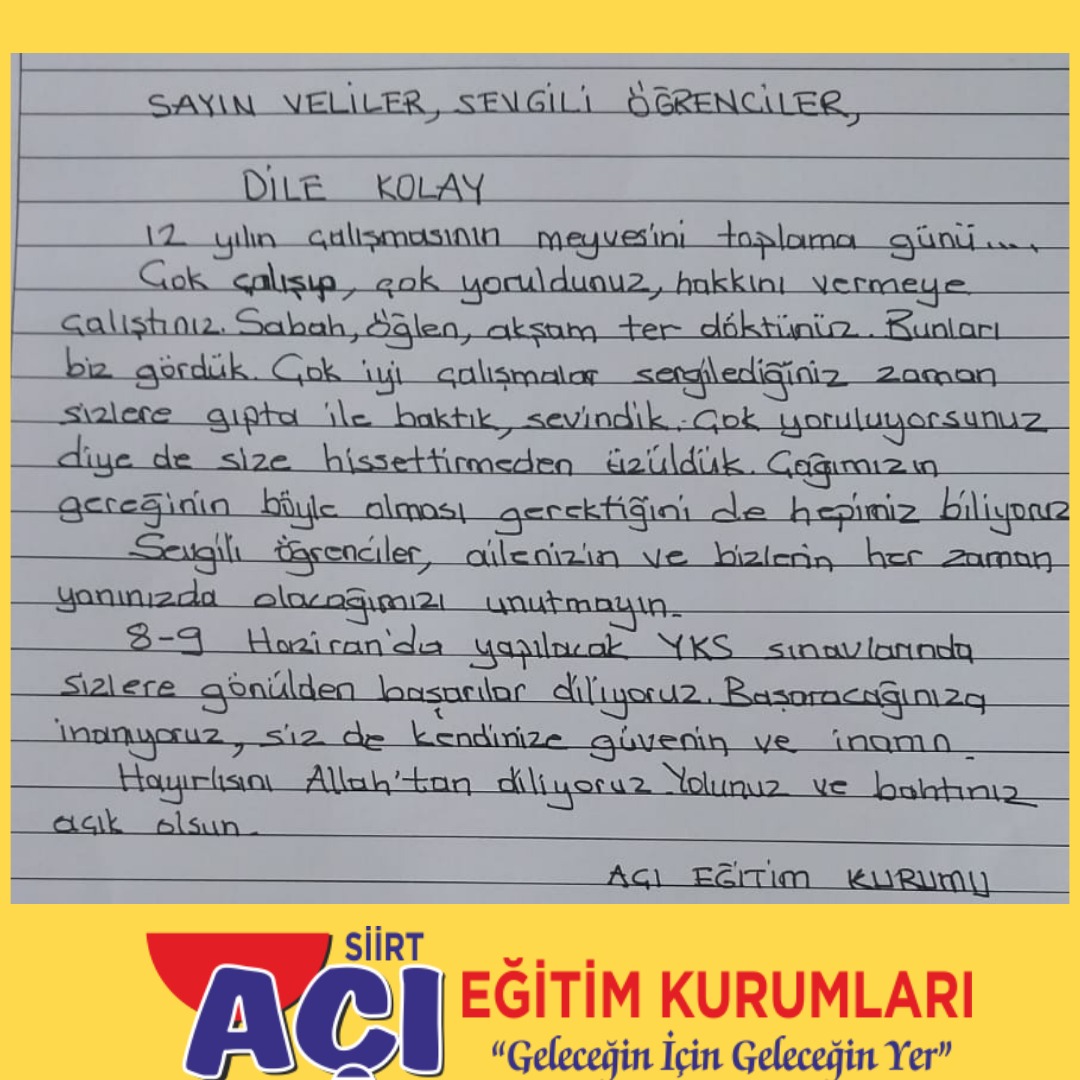 SAYIN VELİLER, SEVGİLİ ÖĞRENCİLER,
DİLE KOLAY
12 yılın çalışmasının meyvesini toplama günü....
Çok çalışıp, çok yoruldunuz, hakkını vermeye
çalıştınız. Sabah, öğlen, akşam ter döktünüz. Bunları
biz gördük. Çok iyi çalışmalar sergilediğiniz zaman
sizlere gıpta ile baktık, sevindik. Çok yoruluyorsunuz
diye de size hissettirmeden üzüldük. Çağımızın
gereğinin böyle olması gerektiğini de hepimiz biliyoruz
Sevgili öğrenciler, ailenizin ve bizlerin her zaman
yanınızda olacağımızı unutmayın.
8-9 Haziran'da yapılacak YKS sınavlarında
sizlere gönülden başarılar diliyoruz. Başaracağınıza
inanıyoruz, siz de kendinize güvenin ve inanın.
Hayırlısını Allah'tan diliyoruz. Yolunuz ve bahtınız
açık olsun.
AÇI EĞİTİM KURUMU
SİİRT
AÇI EĞİTİM KURUMLARI
"Geleceğin İçin Geleceğin Yer"